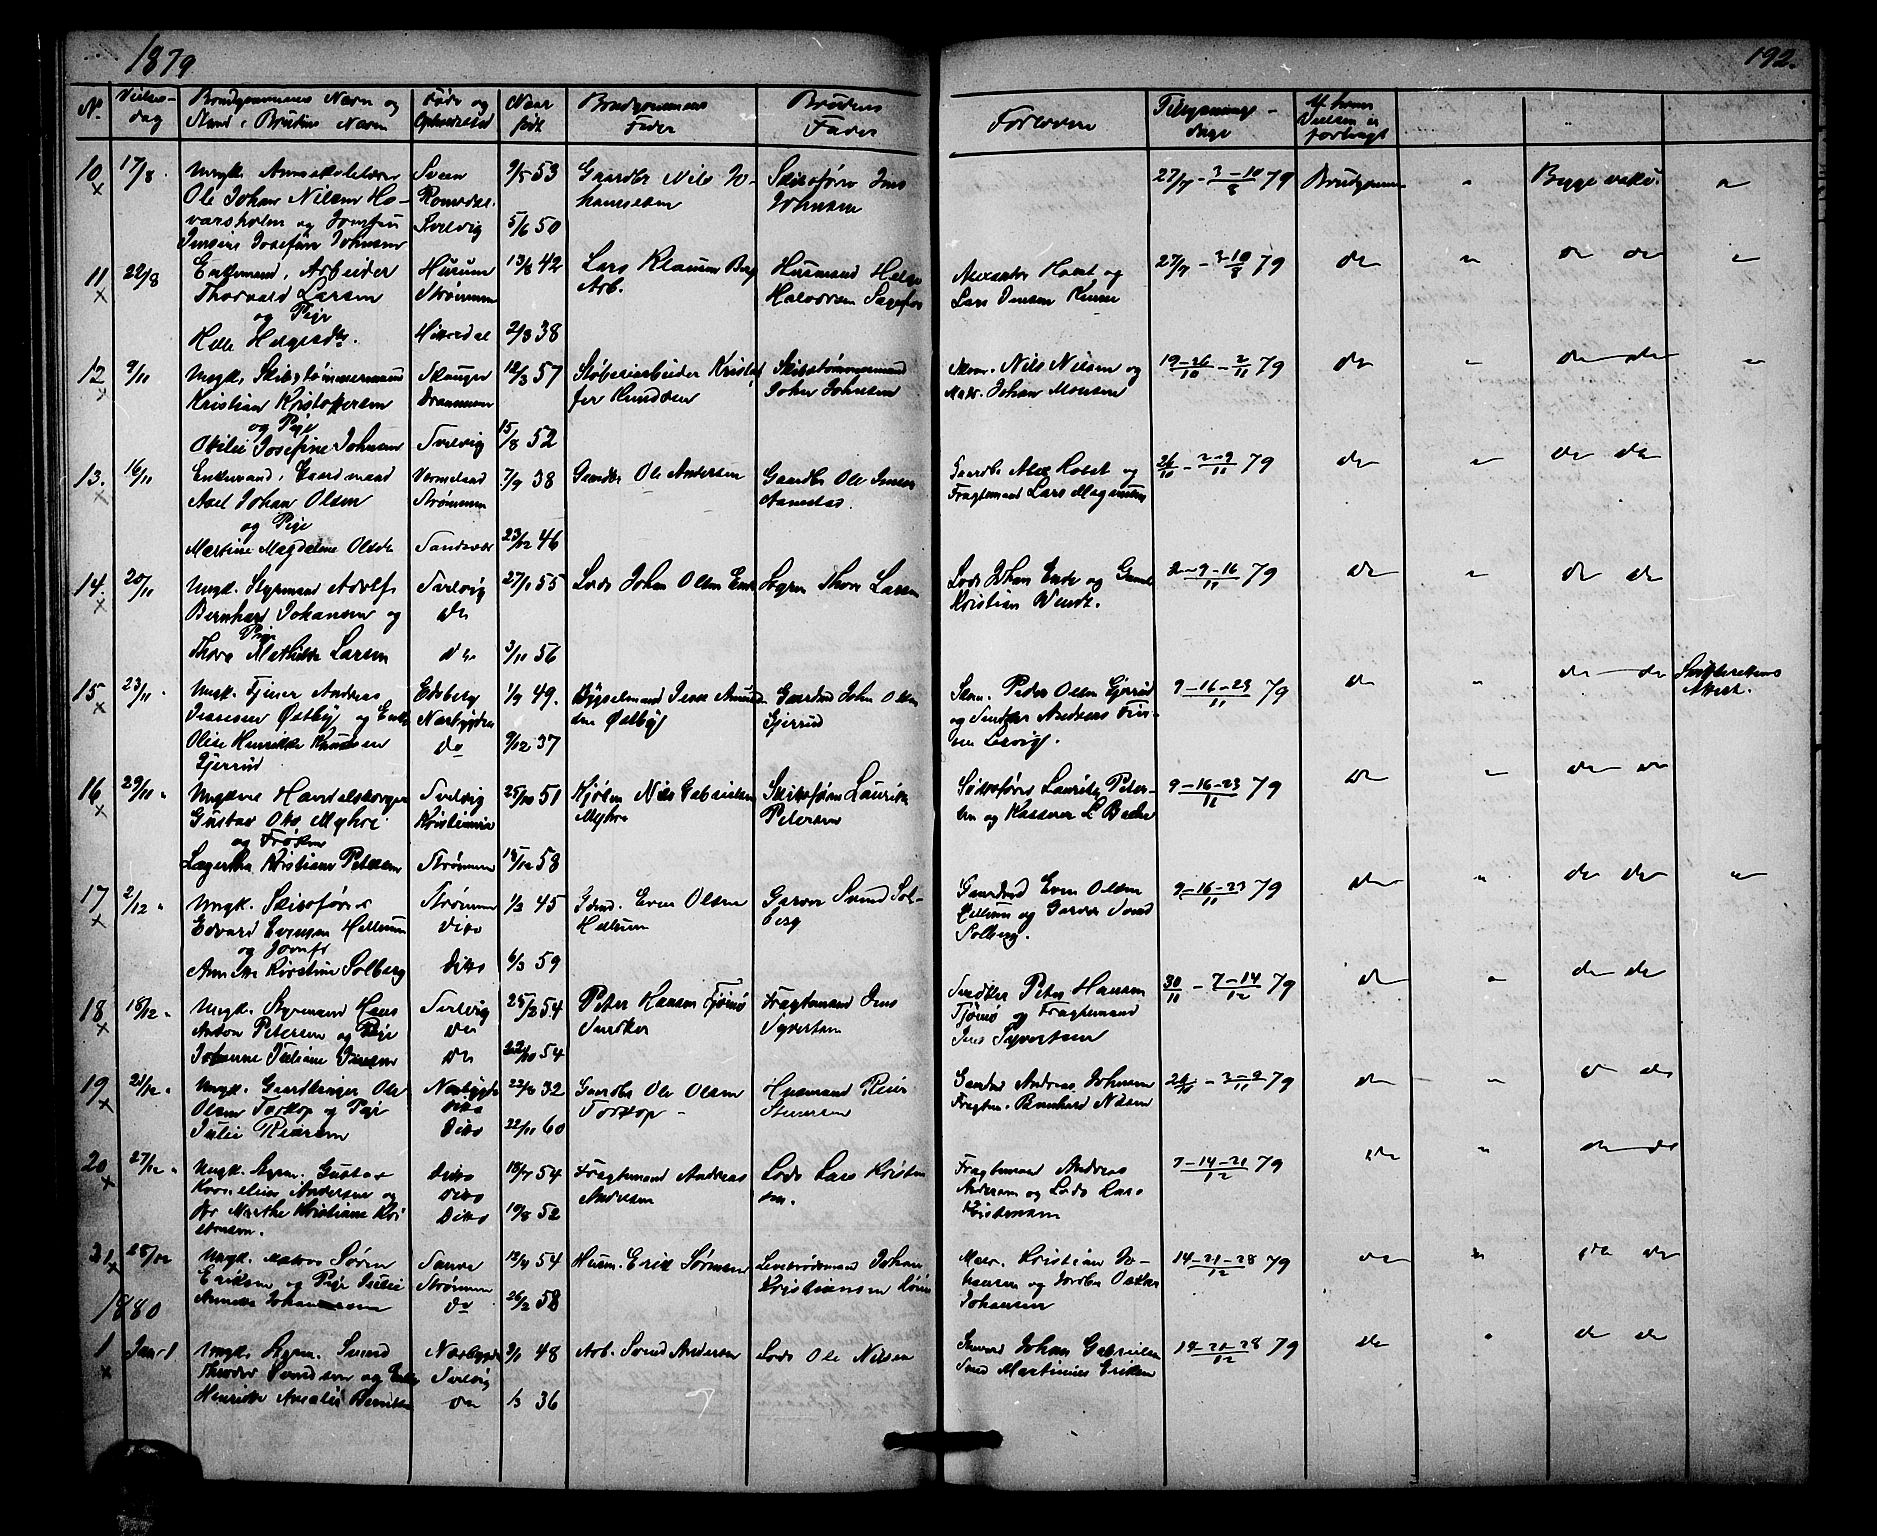 1879
192.
N.
Vielses-
dag
Brudgommens Navn og
Stand, Brudens Navn
Føde og
Opholdssted
Naar
født
Brudgommens
Fader
Brudens
Fader
Forlovere
Tillysnings-
dage
Af hvem
Vielsen er
forlangt
10 17/8. Ungk.
Ole Johan Nilsen Ho-
varsholm og Jomfru
Jensine Josefine Johnsen
Sveen
Romedal.
Svelvig
9/5 53
5/6 50
Gaardbr Nils Jo-
hannesen
Skibsfører Jens
Johnsen
27/7 - 3-10/8 79
Brudgommen
"
Begge vakc.
"
11 22/8
Enkemand, Arbeider
Thorvald Larsen
og Pige
Helle Helgesdtr.
Hurum
Strømmen
Hitterdal
13/6 42
2/8 38
Lars Klausen Berg
Arb.
Husmand Helge
Halvorsen
Alexander Holst og
Lars Jensen
27/7 - 3-10/8 79
do
"
do do
"
12 9/11
Ungk. Skibstømmermand
Kristian Kristoffersen
og Pige
Otilie Josefine Johnsen
Skauger
Drammen
Svelvig
12/3 57
15/8 52
Støberiarbeider Kristof
fer Knudsen
Skibstømmermand
Johan Johnsen
Nils Nilsen og
Matr. Johan Monsen
19-26/10 - 2/11 79
do
"
do do
"
13. 16/11
Enkemand, Gaardmand
Axel Johan Olsen
og Pige
Martine Magdalene Olsdr
Vermeland
Strømmen
Sandsvær
7/9 38
23/12 46
Gaardbr Ole Andersen
Gaardbr Ole Jensen
Gaardbr Alex Holst og
Fragtemand Lars Magnusen
26/10 - 2-9/11 79
do
"
do do
14. 20/11
Ungk. Styrmand Adolf
Bernhard Johansen og
Pige
Thora Mathilde Larsen
Svelvig
do
do
27/1 55
3/11 56
Lods Johan Olsen
Styrm Thor Larsen
Lods Johan og
Kristian Wendt.
2-9-16/11 79
do
"
do do
15 23/11.
Ungk. Tjener Andreas
Østby og Enke
Olise Henrikke Knudsen
Gjerrud
Edsberg
Nærbygden
do
1/9 49.
9/12 37
Bygselmand
Østby
Gaardmd John Olsen
Gjerrud
Peder Olsen Gjerrud
og Andreas
9-16-23/11 79
do
"
do do
Skifterettens
Attest.
16 29/11
Ungkarl
Gustav Myhre
og Frøken
Lagertha Kristiane Petersen
Svelvig
Kristiania
Strømmen
25/10 51
15/12 58
Kjøbm Nils Gabrielsen
Myhre
Skibsfører Lauritz
Petersen
Skibsfører Lauritz Peter-
sen og Kasserer
9-16-23/11 79
do
"
do do
17 2/12
Ungk. Skibsfører
Edvard Evensen Hellum
og Jomfr
Kirstine Solberg
Strømm
ditto
ditto
1/2 45
6/3 59
Gdmd. Even Olsen
Hellum
Garver Svend Sol-
berg
Gaardmd Even Olsen
Hellum og Garver Svend
Solberg.
9-16-23/11 79
do
"
do do
"
18 18/12
Ungk. Styrmand Hans
Anton Petersen og Pige
Johanne Juliane Jensen
Svelvig
do
do
25/12 54
22/10 54
Peter Hansen Tjømø
Snedker
Fragtemand Jens
Syvertsen
Snedker Peter Hansen
Tjømø og Fragtemand
Jens Syvertsen
30/11 - 7-14/12 79
do
"
do do
19 21/12
Ungk. Gaardbruger Ole
Olsen Torkop og Pige
Julie Reiersen
Nærbygden
ditto
Ditto
22/6 32
22/11 60
Gaardbr Ole Olsen
Torkop
Husmand Reier
Gaardmd Andreas Johnsen
Fragtem. Bernhard Nilsen
26/10 - 2-9/11 79
do
"
do do
20 27/12
Ungk. Styrm. Gustav
Kornelius Andersen og
Marthe Kristiane Kri
stensen.
Ditto
ditto
Ditto
18/7 54
19/8 52
Fragtemand Andreas
Andersen
Lods Lars Kristen
sen.
Fragtemand Andreas
Andersen og Lods Lars
Kristensen
7-14-21/12 79
do
"
do do
21 28/12
Ungk. Matros Søren
Eriksen og Pige Julie
Annette Johannessen
Sande
Strømmen
do
12/4 54
26/2 58
Husm. Erik Sørensen
Johan
Kristiansen
Matr. Kristian Jo-
hansen og Oskar
Johansen
14-21-28/12 79
do
"
do do
1880
1 Jan 1
Ungk. Styrm. Svend
Theodor Svendsen og Enke
Henrikke Amalie
Nærbygden
Svelvig
do
3/1 48
1/3 36
Arb. Svend Andersen
Lods Ole Nilsen
Johan Gabrielsen
Smed Martinius Eriksen
14-21-28/12 79
do
"
do do